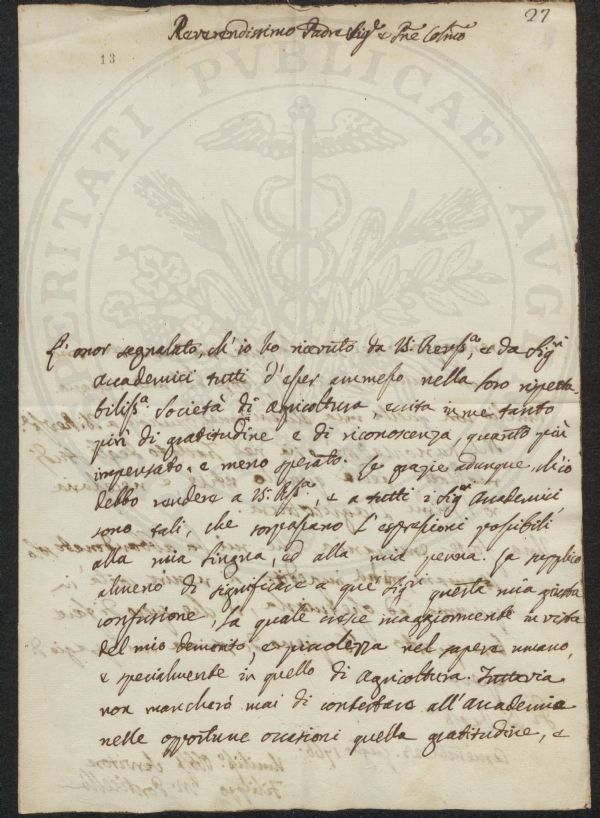 27
13
Reverendissimo Padre Sig.r e Pne Colmo
PROSPERITATI PVBLICAE AVGENDAE
L' onor segnalato, ch' io ho ricevuto da V. Revss.a, e da Sig.ri
Accademici tutti d' esser ammesso nella loro rispetta-
biliss.a Società di Agricoltura, eccita in me tanto
più di gratitudine e di riconoscenza, quanto più
impensato, e meno sperato. Le grazie adunque, ch' io
debbo rendere a V. Rss.a, e a tutti i Sig.ri Academici
sono tali, che sorpassano l' espressioni possibili
alla mia lingua, ed alla mia penna. La supplico
almeno di significare a que' Sig.ri questa mia giusta
confusione, la quale cresce maggiormente in vista
del mio demerito, e picciolezza nel sapere umano,
e specialmente in quello di Agricoltura. Tuttavia
non mancherò mai di contestare all' Academia
nelle opportune occasioni quella gratitudine, e